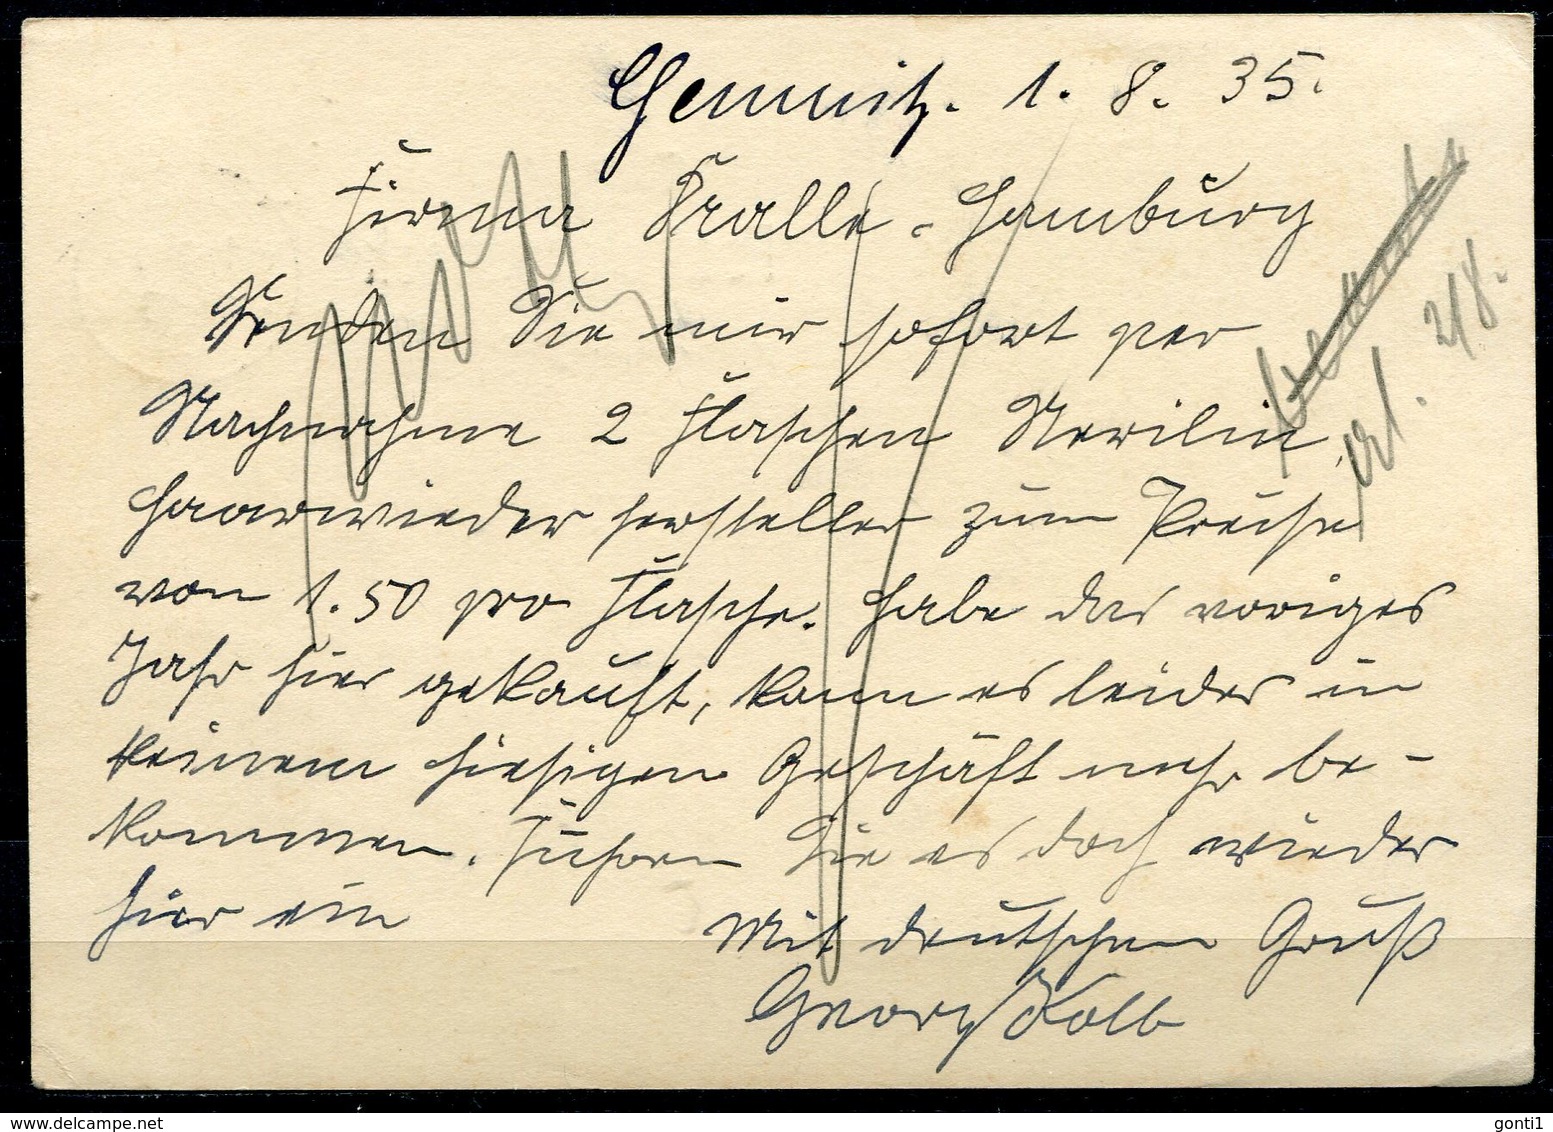 Chemnitz. 1. 8. 35.
Firma Kralle. Hamburg
Senden Sie mir sofort per
Nachnahme 2 Flaschen Nerilin,
Haarwieder hersteller zum Preise
von 1.50 pro Flasche. Habe das voriges
Jahr hier gekauft, kann es leider in
keinem hiesigen Geschäft mehr be-
kommen. Führen Sie es doch wieder
hier ein
Mit deutschem Gruß
Georg Kolb
erl. 2/8.
delcampe.net
gonti1